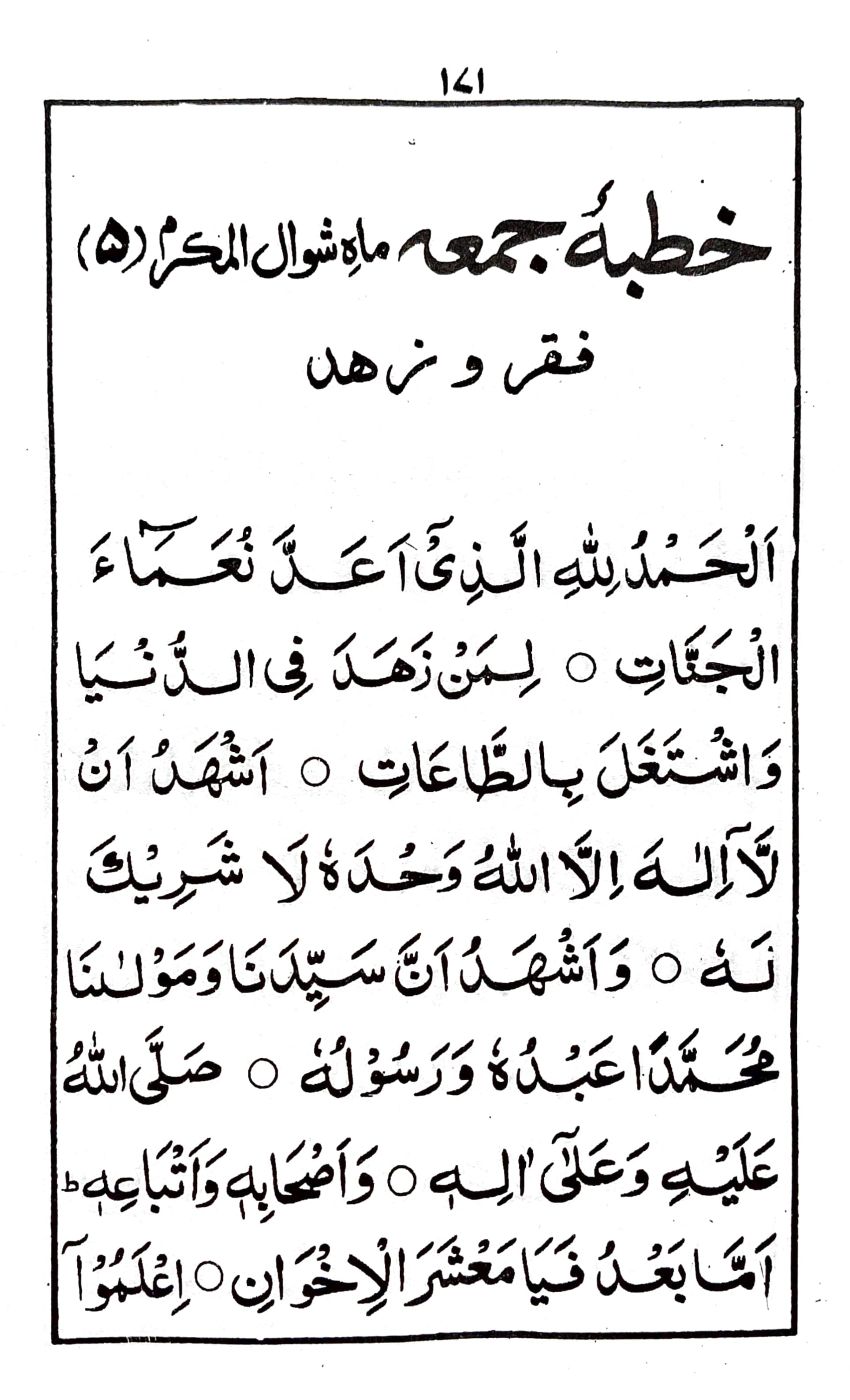 ۱۷۱
خطبۂ جمعہ ماہِ شوال المکرم (۵)
فقر و زهد
اَلْحَمْدُ لِلّٰهِ الَّذِیْۤ اَعَدَّ نُعَمَآءَ
الْجَنَّاتِ ○ لِمَنْ زَهَدَ فِی الدُّنْیَا
وَاشْتَغَلَ بِالطَّاعَاتِ ○ اَشْهَدُ اَنْ
لَّاۤ اِلٰهَ اِلَّا اللّٰهُ وَحْدَهٗ لَا شَرِیْكَ
لَهٗ ○ وَاَشْهَدُ اَنَّ سَیِّدَنَا وَمَوْلٰىنَا
مُحَمَّدًا عَبْدُهٗ وَرَسُوْلُهٗ ○ صَلَّی اللّٰهُ
عَلَیْهِ وَعَلٰۤی اٰلِهٖ ○ وَاَصْحَابِهٖ وَاَتْبَاعِهٖ ط
اَمَّا بَعْدُ فَیَا مَعْشَرَ الْاِخْوَانِ ○ اِعْلَمُوْاۤ